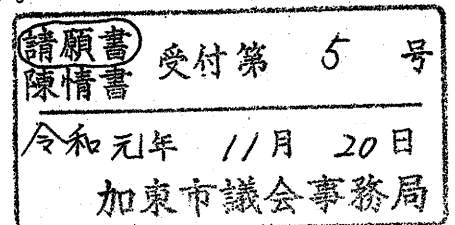 請願書
陳情書 受付第 5 号
令和元年 11月 20日
加東市議会事務局